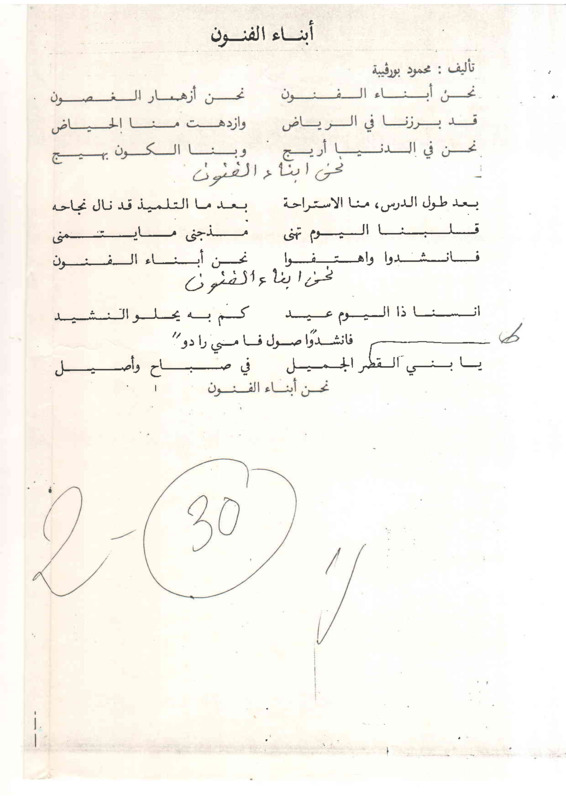 أبناء الفنون
تأليف : محمود بورقيبة
نحن أبناء الفنون نحن أزهار الغصون
قد برزنا في الرياض وازدهت منا الحياض
نحن في الدنيا أريج وبنا الكون بهيج
نحن ابناء الفنون
بعد طول الدرس، منا الاستراحة بعد ما التلميذ قد نال نجاحه
قلبنا اليوم تهنى مذجنى مايتمنى
فانشدوا واهتفوا نحن أبناء الفنون
نحن ابناء الفنون
انسنا ذا اليوم عيد كم به يحلو النشيد
فانشدوا صول فا مي را دو"
يا بني القطر الجميل في صباح وأصيل
نحن أبناء الفنون
2 - 30